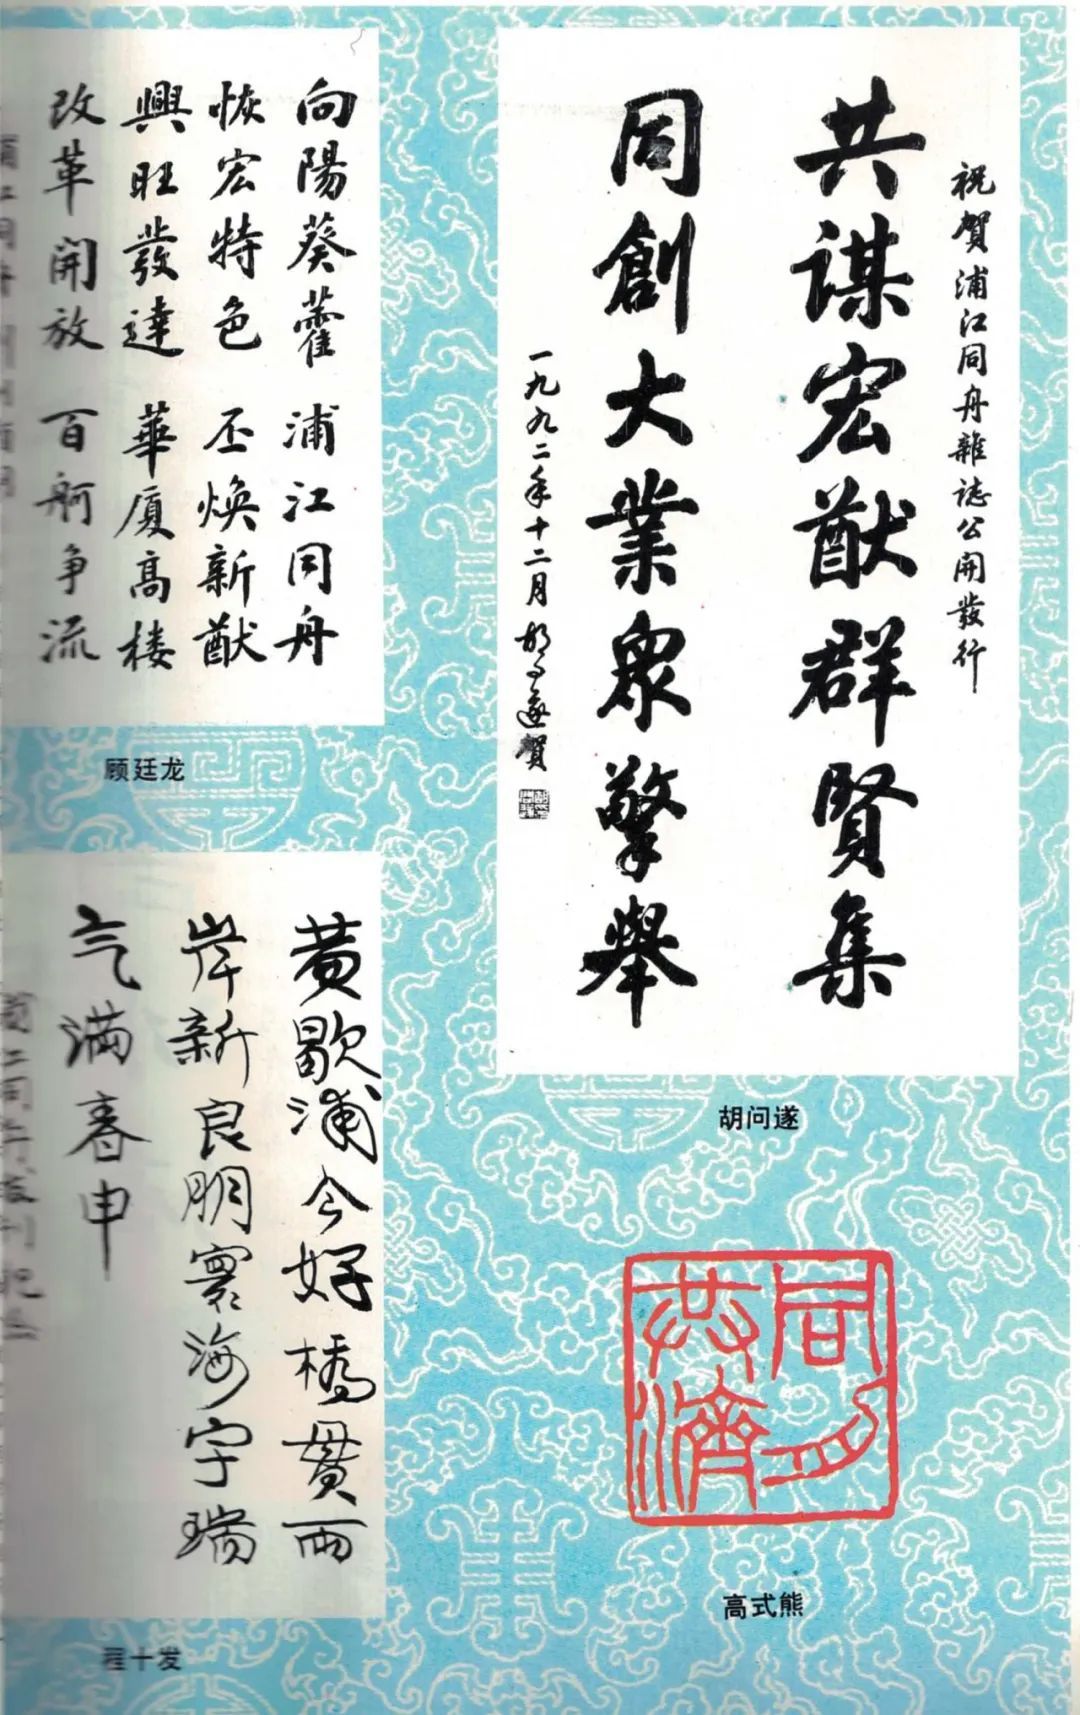 祝賀浦江同舟雜誌公開發行
共謀宏猷群賢集
同創大業眾擎舉
一九九二年十二月胡问遂賀
胡问遂
向陽葵藿 浦江同舟
恢宏特色 丕焕新猷
興旺發達 華廈高楼
改革開放 百舸争流
顾廷龙
黄歇浦今好橋貫兩
岸新良朋寰海宇瑞
气满春申
程十发
同舟
共濟
高式熊